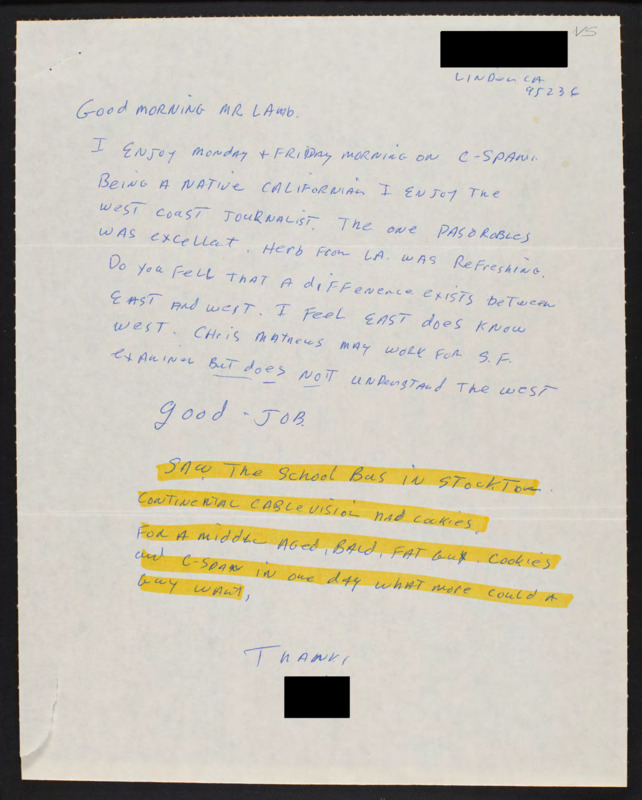 VS
LINDEN CA
95236
Good MORNING MR. LAmb.
I ENJOY MONDAY + FRIDAY MORNING ON C-SPAN.
BEING A NATIVE CALIFORNIAN I ENJOY THE
WEST COAST JOURNALIST. THE ONE PASOROBLES
WAS excellent. Herb From LA. WAS ReFReshing.
Do you Fell THAT A diFFerence exists between
EAST And west. I Feel EAST does KNOW
west. CHris Mathews may work FOR S.F.
exAminer But does NOT UNDERSTAND The west
good - JOB.
SAW The School Bus in STOCKTON.
CONTINENTAL CABLEVISION And cookies.
FOR A middle AGed, BAld, FAT Guy. Cookies
and C-SPAN in one dAy what more could A
Guy wAnt,
THANKS